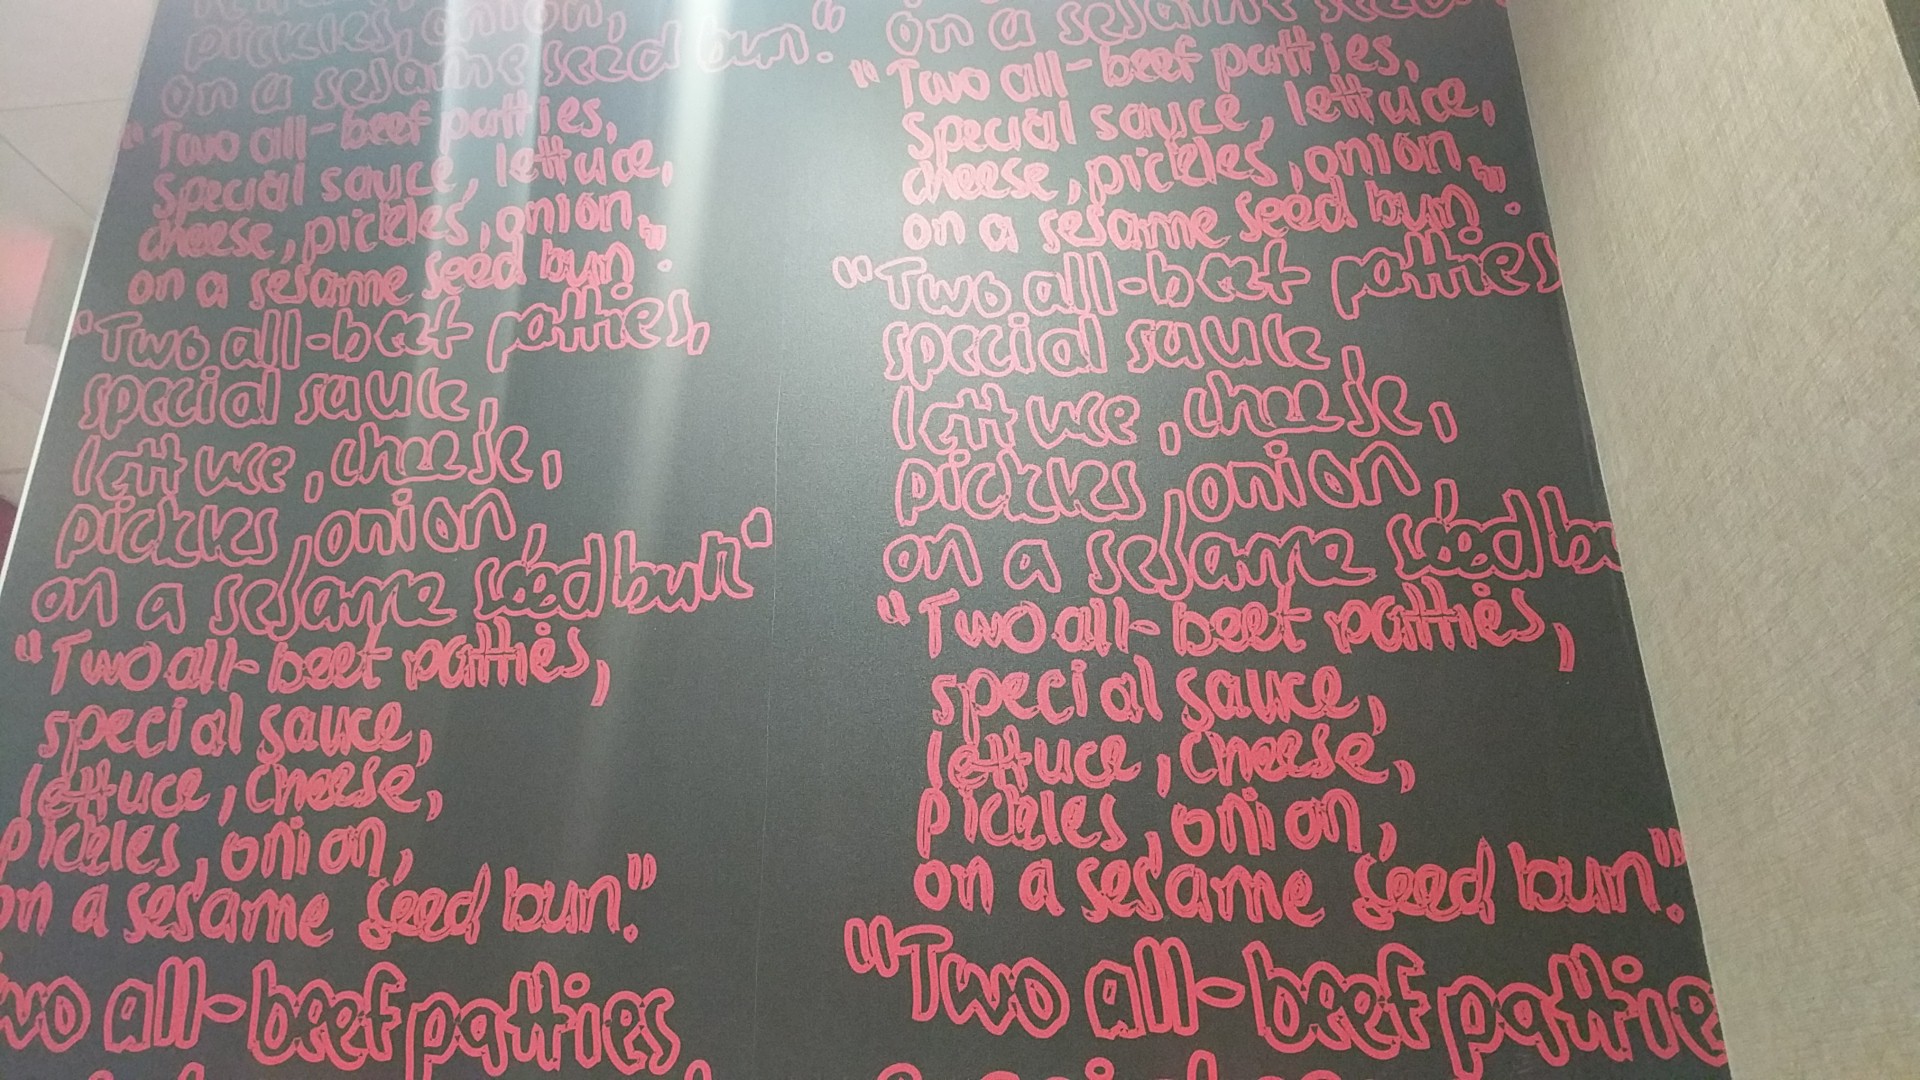 pickles, onion,
on a sesame seed bun."
"Two all-beef patties,
special sauce, lettuce,
cheese, pickles, onion,
on a sesame seed bun".
"Two all-beef patties,
special sauce,
lettuce, cheese,
pickles, onion,
on a sesame seed bun"
"Two all-beef patties,
special sauce,
lettuce, cheese,
pickles, onion,
on a sesame seed bun".
Two all-beef patties
on a sesame seed
"Two all-beef patties,
special sauce, lettuce,
cheese, pickles, onion,
on a sesame seed bun".
"Two all-beef patties
special sauce,
lettuce, cheese,
pickles, onion,
on a sesame seed bu
"Two all-beef patties,
special sauce,
lettuce, cheese,
pickles, onion,
on a sesame seed bun".
"Two all-beef pattie